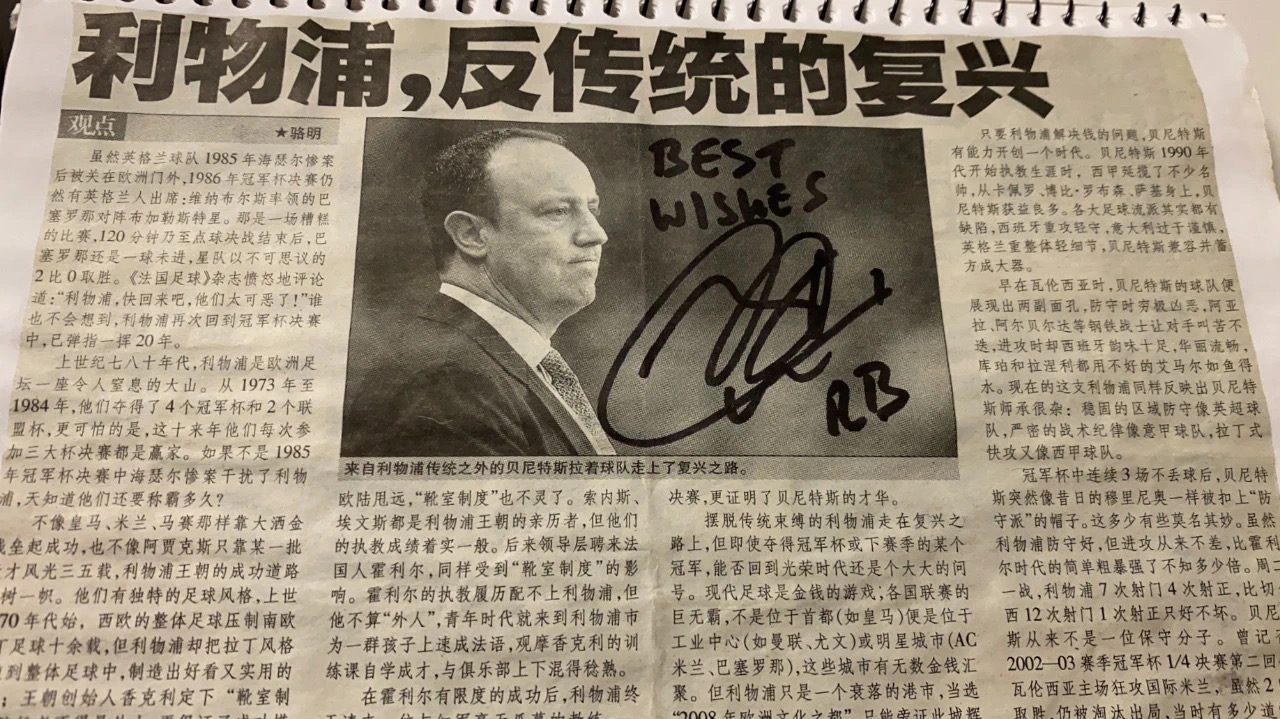 利物浦,反传统的复兴
观点
★骆明
虽然英格兰球队1985年海瑟尔惨案
后被关在欧洲门外,1986年冠军杯决赛仍
然有英格兰人出席:维纳布尔斯率领的巴
塞罗那对阵布加勒斯特星。那是一场糟糕
的比赛,120分钟乃至点球决战结束后,巴
塞罗那还是一球未进,星队以不可思议的
2比0取胜。《法国足球》杂志愤怒地评论
道:“利物浦,快回来吧,他们太可恶了!”谁
也不会想到,利物浦再次回到冠军杯决赛
中,已弹指一挥20年。
上世纪七八十年代,利物浦是欧洲足
坛一座令人窒息的大山。从1973年至
1984年,他们夺得了4个冠军杯和2个联
盟杯,更可怕的是,这十来年他们每次参
加三大杯决赛都是赢家。如果不是1985
年冠军杯决赛中海瑟尔惨案干扰了利物
浦,天知道他们还要称霸多久?
不像皇马、米兰、马赛那样靠大洒金
垒起成功,也不像阿贾克斯只靠某一批
才风光三五载,利物浦王朝的成功道路
树一帜。他们有独特的足球风格,上世
70年代始,西欧的整体足球压制南欧
丁足球十余载,但利物浦却把拉丁风格
到整体足球中,制造出好看又实用的
;王朝创始人香克利定下“靴室制
BEST
WISHES
RB
来自利物浦传统之外的贝尼特斯拉着球队走上了复兴之路。
欧陆甩远,“靴室制度”也不灵了。索内斯、
埃文斯都是利物浦王朝的亲历者,但他们
的执教成绩着实一般。后来领导层聘来法
国人霍利尔,同样受到“靴室制度”的影
响。霍利尔的执教履历配不上利物浦,但
他不算“外人”,青年时代就来到利物浦市
为一群孩子上速成法语,观摩香克利的训
练课自学成才,与俱乐部上下混得稔熟。
在霍利尔有限度的成功后,利物浦终
决赛,更证明了贝尼特斯的才华。
摆脱传统束缚的利物浦走在复兴之
路上,但即使夺得冠军杯或下赛季的某个
冠军,能否回到光荣时代还是个大大的问
号。现代足球是金钱的游戏,各国联赛的
巨无霸,不是位于首都(如皇马)便是位于
工业中心(如曼联、尤文)或明星城市(AC
米兰、巴塞罗那),这些城市有无数金钱汇
聚。但利物浦只是一个衰落的港市,当选
“2008年欧洲文化之都”只能旁证此城辉
只要利物浦解决钱的问题,贝尼特斯
有能力开创一个时代。贝尼特斯1990年
代开始执教生涯时,西甲延揽了不少名
帅,从卡佩罗、博比·罗布森、萨基身上,贝
尼特斯获益良多。各大足球流派其实都有
缺陷,西班牙重攻轻守,意大利过于谨慎,
英格兰重整体轻细节,贝尼特斯兼容并蓄
方成大器。
早在瓦伦西亚时,贝尼特斯的球队便
展现出两副面孔,防守时穷极凶恶,阿亚
拉、阿尔贝尔达等钢铁战士让对手叫苦不
迭,进攻时却西班牙韵味十足,华丽流畅,
库珀和拉涅利都用不好的艾马尔如鱼得
水。现在的这支利物浦同样反映出贝尼特
斯师承很杂:稳固的区域防守像英超球
队,严密的战术纪律像意甲球队,拉丁式
快攻又像西甲球队。
冠军杯中连续3场不丢球后,贝尼特
斯突然像昔日的穆里尼奥一样被扣上“防
守派”的帽子。这多少有些莫名其妙。虽然
利物浦防守好,但进攻从来不差,比霍利
尔时代的简单粗暴强了不知多少倍。周二
一战,利物浦7次射门4次射正,比切
西12次射门1次射正只好不坏。贝尼
斯从来不是一位保守分子。曾记
2002—03赛季冠军杯1/4决赛第二回
瓦伦西亚主场狂攻国际米兰,虽然2
取胜,仍被淘汰出局,当时有多少道